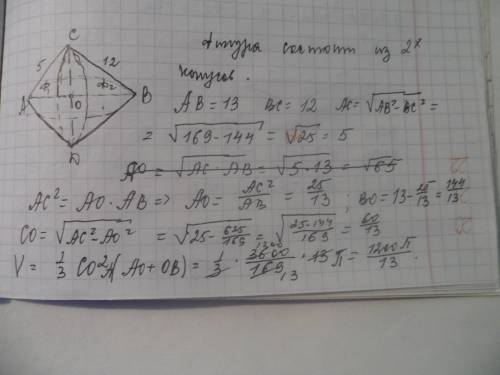 C
5
12
Ф₁
Ф₂
A
O
B
D
Фигура состоит из 2ˣ
конусов.
AB = 13 BC = 12 AC = √(AB² - BC²) =
= √(169 - 144) = √25 = 5
AO = √(AC · AB) = √(5 · 13) = √65
AC² = AO · AB => AO = AC²/AB = 25/13 ; BO = 13 - 25/13 = 144/13
CO = √(AC² - AO²) = √(25 - 625/169) = √(25·144/169) = 60/13
V = 1/3 CO²π(AO + OB) = 1/3 · 3600/169 · 13π = 1200π/13 .
1200
13